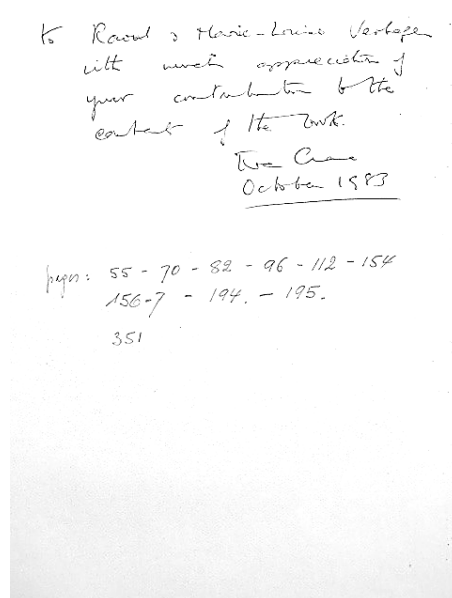 to Raoul & Marie-Louise Verhagen
with much appreciation of
your contribution to the
content of the book.
Eva Crane
October 1983
pages: 55 - 70 - 82 - 96 - 112 - 154
156-7 - 194. - 195.
351